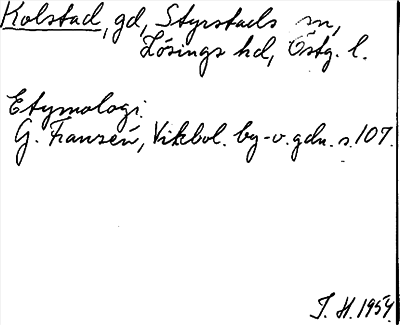 Kolstad, gd, Styrstads sn,
Lösings hd, Östg. l.
Etymologi.
G. Franzén, Vikbol. by-o. gdn. s. 107.
J. H. 1954.